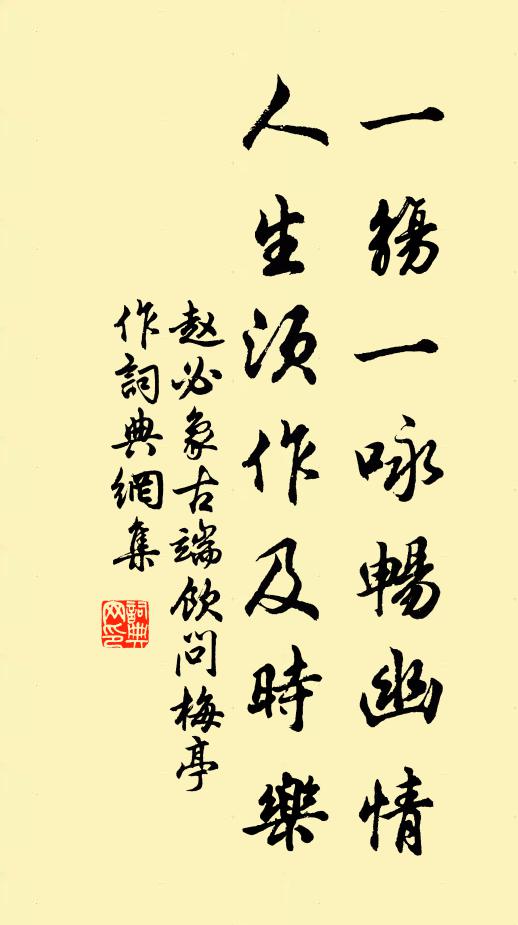 一觴一咏暢幽情
人生須作及時樂
赵必象古端飲问梅亭
作詞典網集
詞典网印